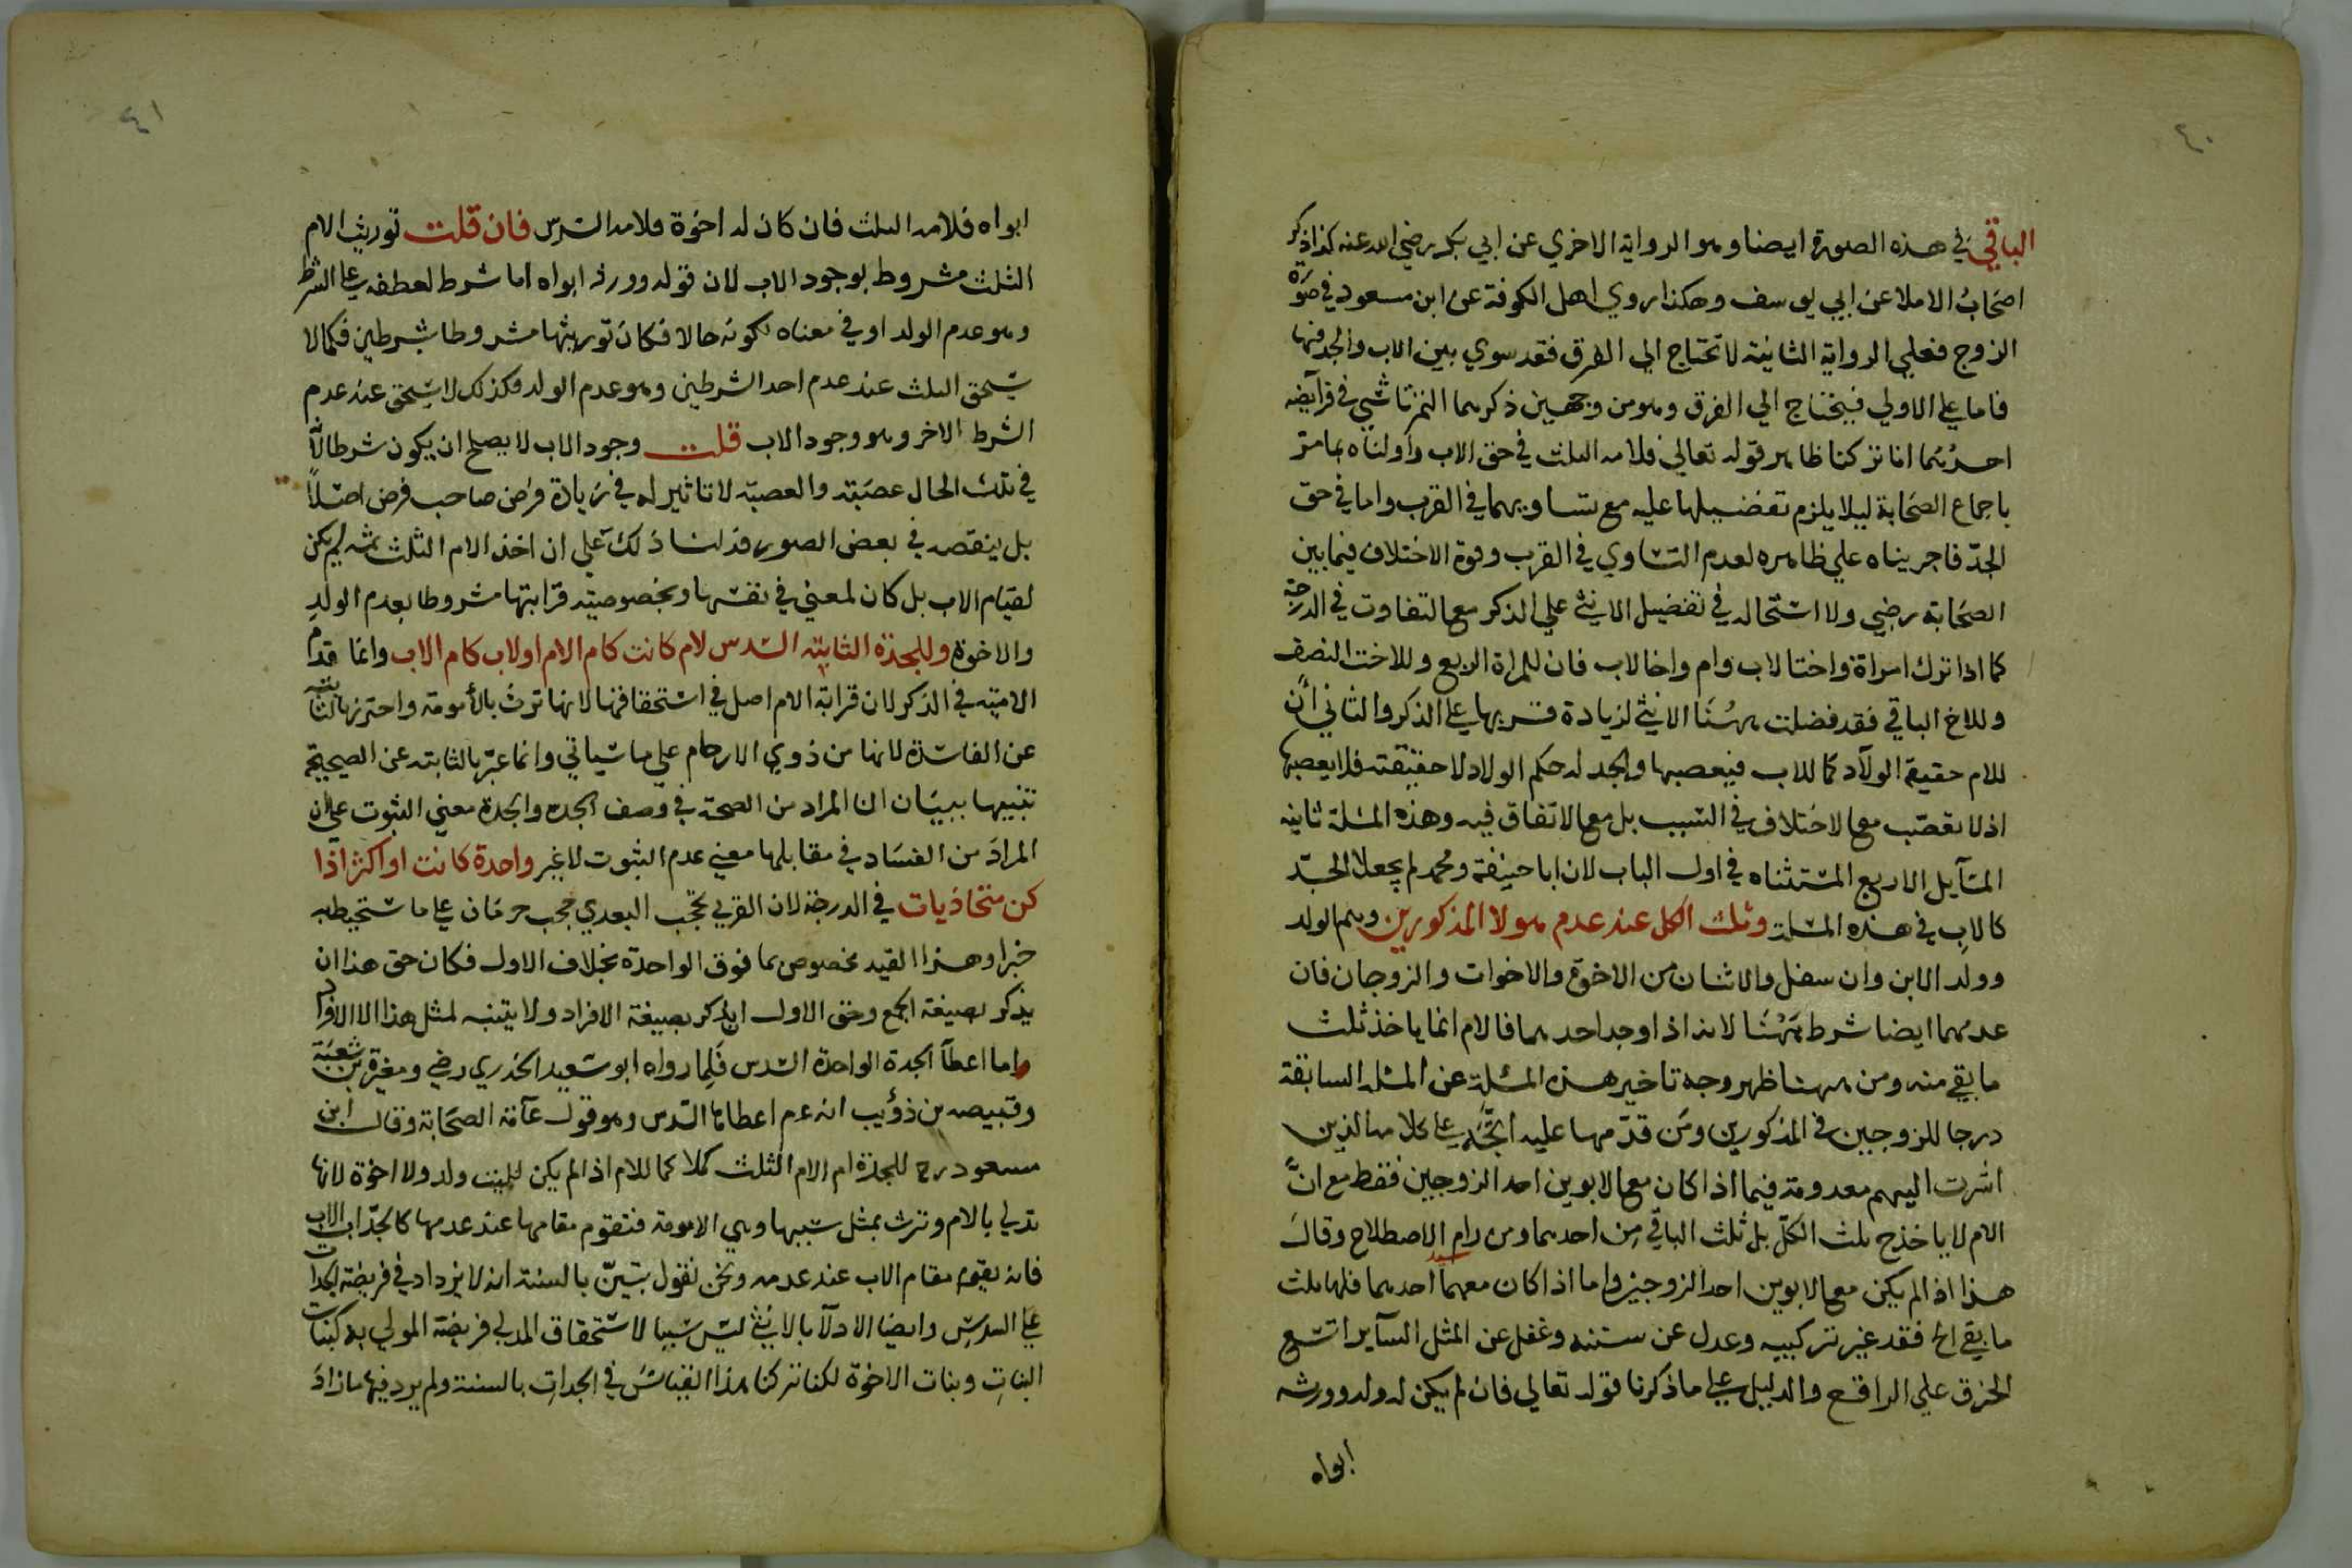 ٤٠
الباقي في هذه الصورة ايضا وهو الرواية الاخري عن ابي بكر رضي الله عنه كذا ذكر
اصحاب الاملا عن ابي يوسف وهكذا روي اهل الكوفة عن ابن مسعود في صورة
الزوج فعلي الرواية الثانية لا تحتاج الي الفرق فقد سوي بين الاب والجد فيها
فاما علي الاولي فيحتاج الي الفرق وهو من وجهين ذكرهما التمرتاشي في فرآيضه
احدهما انا تركنا ظاهر قوله تعالي فلامه الثلث في حق الاب واولناه بما مر
باجماع الصحابة ليلا يلزم تفضيلها عليه مع تساويهما في القرب واما في حق
الجد فاجريناه علي ظاهره لعدم التساوي في القرب وقوة الاختلاف فيما بين
الصحابة رضي ولا استحالة في تفضيل الانثي علي الذكر مع التفاوت في الدرجة
كما اذا ترك امراة واختا لاب وام واخا لاب فان للمراة الربع وللاخت النصف
وللاخ الباقي فقد فضلت ههنا الانثي لزيادة قربها علي الذكر والثاني ان
للام حقيقة الولآد كما للاب فيعصبها والجد له حكم الولاد لا حقيقته فلا يعصبها
اذ لا تعصب مع الاختلاف في السبب بل مع الاتفاق فيه وهذه المسئلة ثانية
المسآيل الاربع المستثناه في اول الباب لان ابا حنيفة ومحمد لم يجعلا الجد
كالاب في هذه المسئلة وثلث الكل عند عدم هولا المذكورين وهم الولد
وولد الابن وان سفل والاثنان من الاخوة والاخوات والزوجان فان
عدمهما ايضا شرط ههنا لانه اذا وجد احدهما فالام انما ياخذ ثلث
ما بقي منه ومن ههنا ظهر وجه تاخير هذه المسئلة عن المسئلة السابقة
درجا للزوجين في المذكورين ومن قدمها عليه اتجه علي كلامه الذين
اشرت اليهم معدومة فيما اذا كان مع الابوين احد الزوجين فقط مع ان
الام لا ياخذ ح ثلث الكل بل ثلث الباقي من احدهما ومن رام الاصطلاح وقال
هذا اذا لم يكن مع الابوين احد الزوجين واما اذا كان معهما احدهما فلها ثلث
ما بقي الخ فقد غير تركيبه وعدل عن سننه وغفل عن المثل السآير اتسع
الخرق علي الراقع والدليل علي ما ذكرنا قوله تعالي فان لم يكن له ولد وورثه
ابواه
٤١
ابواه فلامه الثلث فان كان له اخوة فلامه السدس فان قلت توريث الام
الثلث مشروط بوجود الاب لان قوله وورثه ابواه اما شرط لعطفه علي الشرط
وهو عدم الولد او في معناه لكونه حالا فكان توريثها مشروطا بشرطين فكما لا
يستحق الثلث عند عدم احد الشرطين وهو عدم الولد فكذلك لا يستحق عند عدم
الشرط الاخر وهو وجود الاب قلت وجود الاب لا يصلح ان يكون شرطا لانه
في تلك الحال عصبة والعصبة لا تاثير له في زيادة فرض صاحب فرض اصلا
بل ينقصه في بعض الصور فدلنا ذلك علي ان اخذ الام الثلث ثمه لم يكن
لقيام الاب بل كان لمعني في نفسها وبخصوصية قرابتها مشروطا بعدم الولد
والاخوة وللجدة الثابتة السدس لام كانت كام الام او لاب كام الاب وانما قدم
الامية في الذكر لان قرابة الام اصل في استحقاقها لانها ترث بالأمومة واحترز بالثابته
عن الفاسدة لانها من ذوي الارحام علي ما سياتي وانما عبر بالثابتة عن الصحيحة
تنبيها ببيان ان المراد من الصحة في وصف الجد والجدة معني الثبوت علي ان
المراد من الفساد في مقابلها معني عدم الثبوت لا غير واحدة كانت او اكثر اذا
كن متحاذيات في الدرجة لان القربي تحجب البعدي حجب حرمان علي ما ستحيط به
خبرا وهذا القيد مخصوص بما فوق الواحدة بخلاف الاول فكان حق هذا ان
يذكر بصيغة الجمع وحق الاول ان يذكر بصيغة الافراد ولا يتنبه لمثل هذا الا الافراد
واما اعطآ الجدة الواحدة السدس فلما رواه ابو سعيد الخدري رضي ومغيرة بن شعبة
وقبيصه بن ذؤيب انه عم اعطاها السدس وهو قول عآمة الصحابة وقال ابن
مسعود رح للجدة ام الام الثلث كملا كما للام اذا لم يكن للميت ولد ولا اخوة لانها
تدلي بالام وترث بمثل سببها وهي الامومة فتقوم مقامها عند عدمها كالجد اب الاب
فانه يقوم مقام الاب عند عدمه ونحن نقول تبين بالسنة انه لا يزداد في فريضة الجدات
علي السدس وايضا الادلآ بالانثي ليس سببا لاستحقاق المدلي فريضة المدلي به كبنات
البنات وبنات الاخوة لكنا تركنا هذا القياس في الجدات بالسنة ولم يرد فيها ما زاد